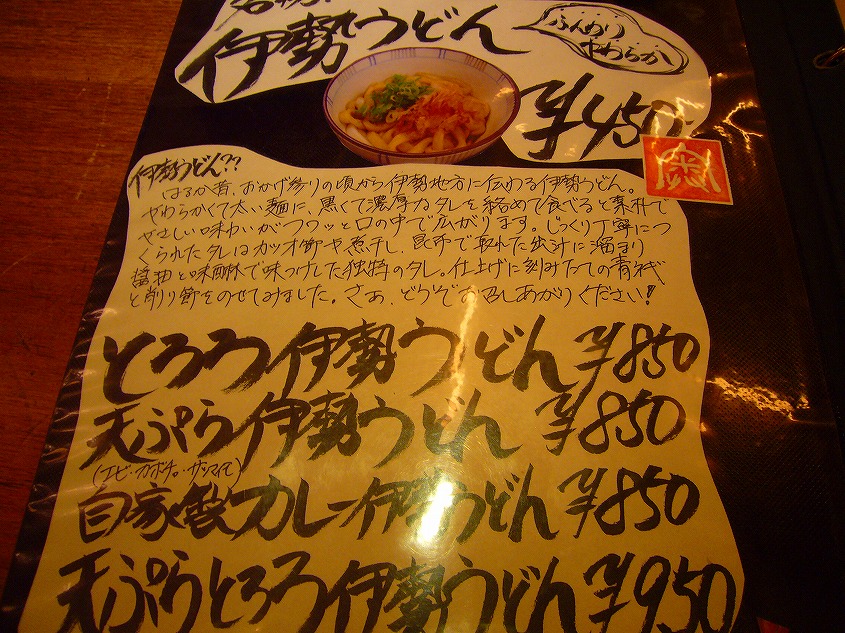 名物!
伊勢うどん
ふんわり
やわらか
¥450-
伊勢うどん??
はるか昔、おかげ参りの頃から伊勢地方に伝わる伊勢うどん。
やわらかくて太い麺に、黒くて濃厚なタレを絡めて食べると素朴で
やさしい味わいがフワッと口の中で広がります。じっくり丁寧につ
くられたタレはカツオ節や煮干し、昆布で取れた出汁に溜まり
醤油と味醂で味つけした独特のタレ。仕上げに刻みたての青ネギ
と削り節をのせてみました。さぁ、どうぞお召しあがりください!
とろろ伊勢うどん ¥850
天ぷら伊勢うどん ¥850
(エビ・カボチャ・サツマイモ)
自家製カレー伊勢うどん ¥850
天ぷらとろろ伊勢うどん ¥950